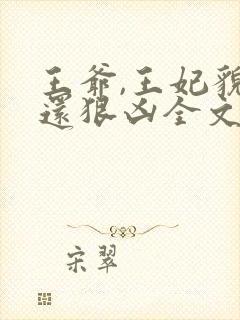 王爺,王妃貌
還狠凶全文
宋翠